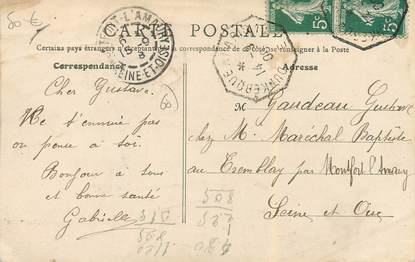 80 €
CARTE POSTALE
Certains pays étrangers n'acceptent pas la correspondance de ce côté, se renseigner à la Poste
Correspondance
Adresse
MONTFORT-L'AMAURY
SEINE-ET-OISE
DUNKERQUE
5c
5c
Cher Gustave.
Ne t'ennuie pas
on pense à toi.
Bonjour à tous
et bonne santé
Gabrielle
M Gaudeau Gustave
chez M. Maréchal Baptiste
au Tremblay par Montfort l'Amaury
Seine et Oise
508